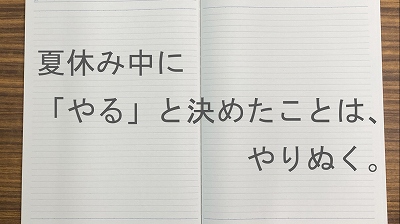 夏休み中に
「やる」と決めたことは、
やりぬく。